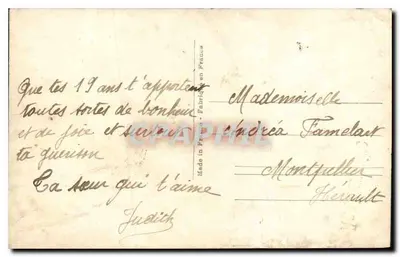 Que tes 19 ans t'apportent
toutes sortes de bonheur
et de joie et surtout
ta guérison
Ta sœur qui t'aime
Judith
Made in France - Fabriqué en France
Mademoiselle
Andréa
Montpellier
Hérault